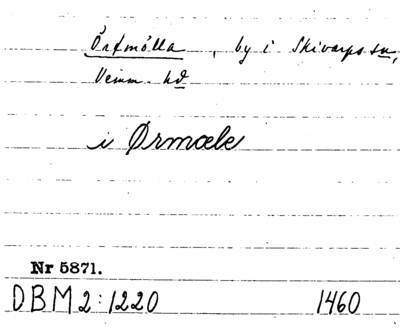 Örtmölla, by i Skivarps sn,
Vemm. hd
i Ørmœle
Nr 5871.
DBM 2:1220 1460